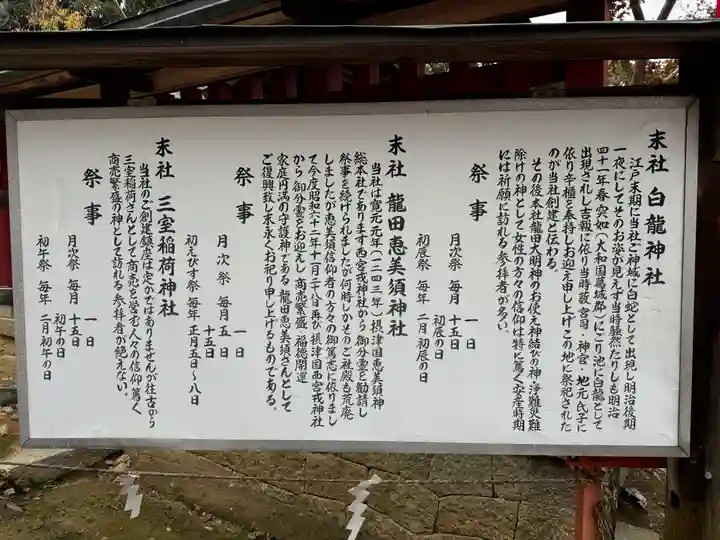 末社 白龍神社
江戸末期に当社ご神域に白蛇として出現し明治後期
一夜にしてそのお姿が見えず当時騒然たりしも明治
四十一年春 突如(大和国葛城郡)にごり池に白龍として
出現されし吉報に依り当時藪宮司・神官・地元氏子に
依り辛櫃を奉持しお迎え申し上げこの地に祭祀された
のが当社創建と伝わる。
その後本社龍田大明神のお使え神結びの神・浄難災難
除けの神として女性の方々の信仰は特に篤く安産時期
には祈願に訪れる参拝者が多い。
祭事
月次祭 毎月 一日
十五日
初辰の日
初辰祭 毎年 二月初辰の日
末社 龍田恵美須神社
当社は寛元元年(一二四三年)摂津国恵美須神
総本社であります西宮戎神社から御分霊を勧請し
祭事を続けられましたが何時しかそのご社殿も荒廃
しましたが恵美須信仰者の方々の御篤志に依りまし
て今度昭和六十二年十一月二十八日再び摂津国西宮戎神社
から御分霊をお迎えし商売繁盛・福徳開運
家庭円満の守護神である龍田恵美須さんとして
ご復興致し末永くお祀り申し上げるものである。
祭事
月次祭 毎月 一日
五日
十五日
初えびす祭 毎年 正月五日〜八日
末社 三室稲荷神社
当社のご創建鎮座は定かではありませんが往古から
三室稲荷さんとして商売を営む人々の信仰篤く
商売繁盛の神として訪れる参拝者が絶えない。
祭事
月次祭 毎月 一日
十五日
初午の日
初午祭 毎年 二月初午の日